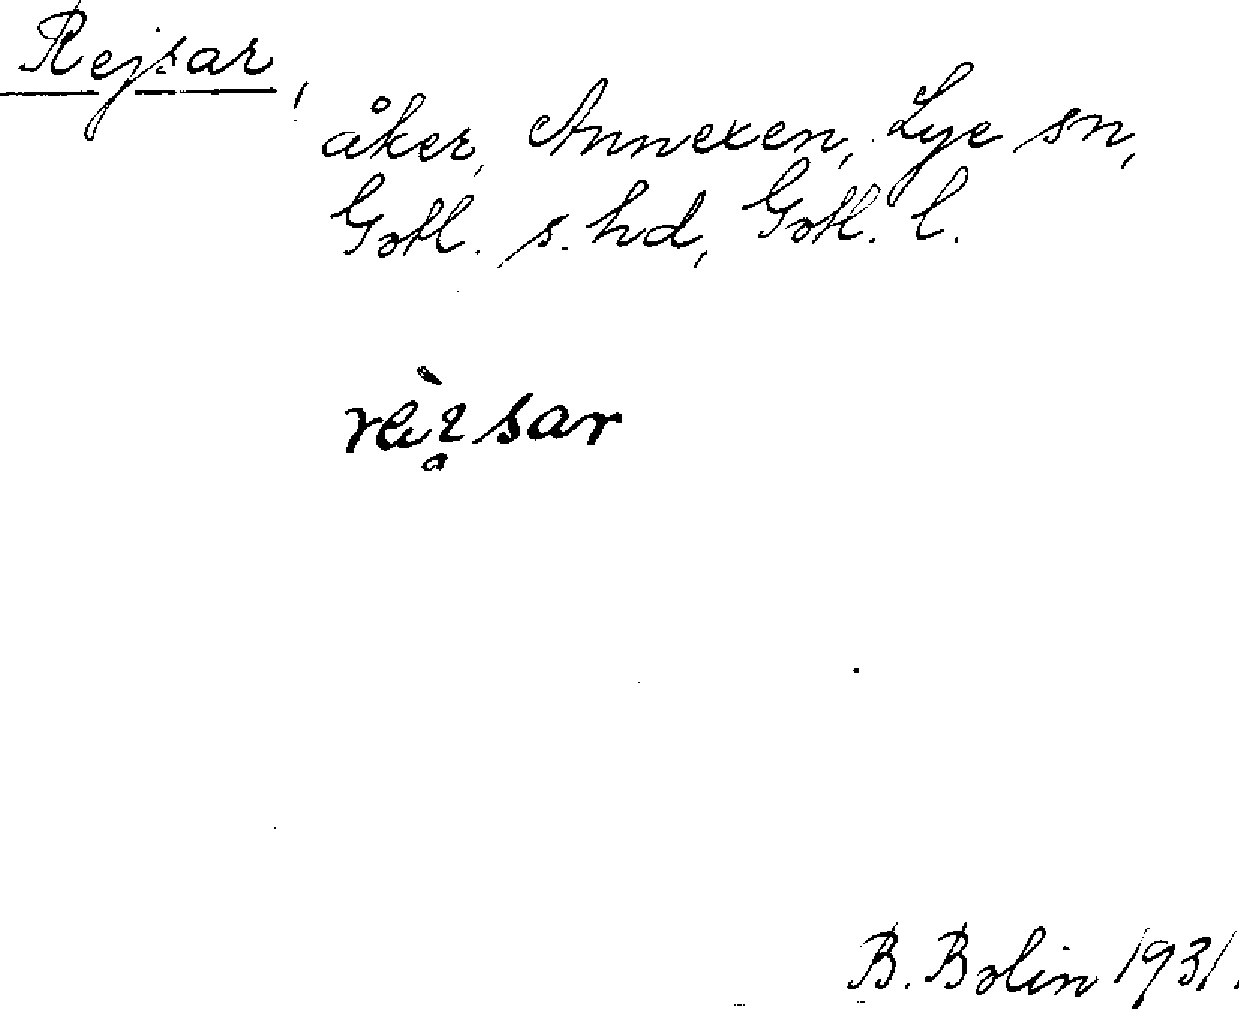 Rejsar,
åker, Annexen, Lye sn,
Gotl. s. hd, Gotl. l.
sar
B. Bolin 1931.